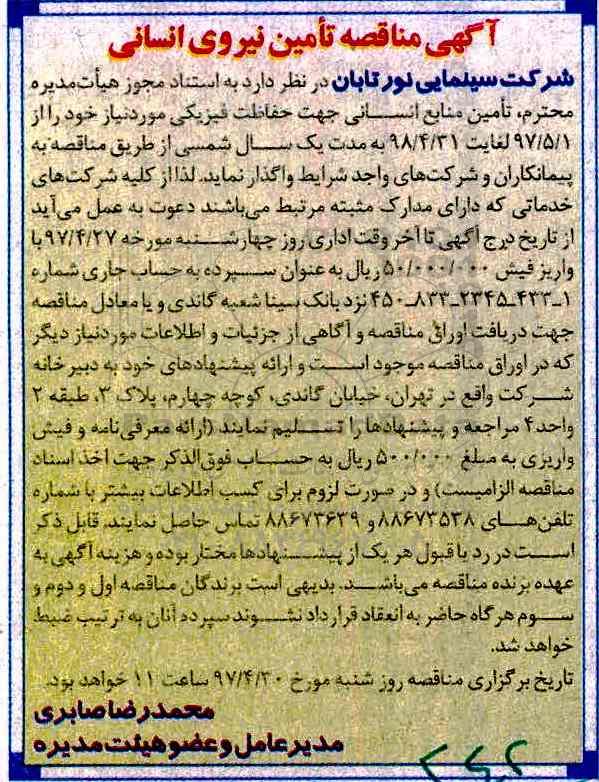 آگهی مناقصه تأمین نیروی انسانی
شرکت سینمایی نور تابان در نظر دارد به استناد مجوز هیأت‌مدیره
محترم، تأمین منابع انسانی جهت حفاظت فیزیکی موردنیاز خود را از
۹۷/۵/۱ لغایت ۹۸/۴/۳۱ به مدت یک سال شمسی از طریق مناقصه به
پیمانکاران و شرکت‌های واجد شرایط واگذار نماید. لذا از کلیه شرکت‌های
خدماتی که دارای مدارک مثبته مرتبط می‌باشند دعوت به عمل می‌آید
از تاریخ درج آگهی تا آخر وقت اداری روز چهارشنبه مورخه ۹۷/۴/۲۷ با
واریز فیش ۵۰/۰۰۰/۰۰۰ ریال به عنوان سپرده به حساب جاری شماره
۱ـ۴۳۳ـ۲۳۴۵ـ۸۳۳ـ۴۵۰ نزد بانک سینا شعبه گاندی و یا معادل مناقصه
جهت دریافت اوراق مناقصه و آگاهی از جزئیات و اطلاعات موردنیاز دیگر
که در اوراق مناقصه موجود است و ارائه پیشنهادهای خود به دبیرخانه
شرکت واقع در تهران، خیابان گاندی، کوچه چهارم، پلاک ۳، طبقه ۲
واحد۴ مراجعه و پیشنهادها را تسلیم نمایند (ارائه معرفی‌نامه و فیش
واریزی به مبلغ ۵۰۰/۰۰۰ ریال به حساب فوق‌الذکر جهت اخذ اسناد
مناقصه الزامیست) و در صورت لزوم برای کسب اطلاعات بیشتر با شماره
تلفن‌های ۸۸۶۷۳۵۳۸ و ۸۸۶۷۳۶۳۹ تماس حاصل نمایند. قابل ذکر
است در رد یا قبول هر یک از پیشنهادها مختار بوده و هزینه آگهی به
عهده برنده مناقصه می‌باشد. بدیهی است برندگان مناقصه اول و دوم و
سوم هرگاه حاضر به انعقاد قرارداد نشوند سپرده آنان به ترتیب ضبط
خواهد شد.
تاریخ برگزاری مناقصه روز شنبه مورخ ۹۷/۴/۳۰ ساعت ۱۱ خواهد بود.
محمدرضا صابری
مدیرعامل و عضو هیئت مدیره